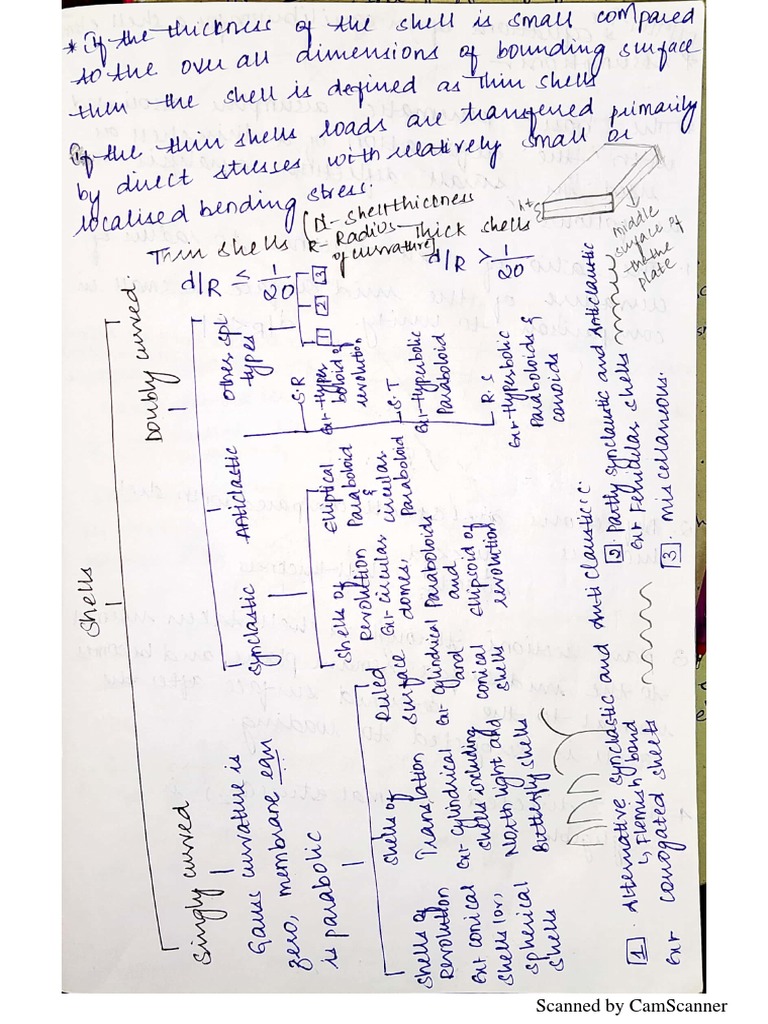 * If the thickness of the shell is small compared
to the over all dimensions of bounding surface
then the shell is defined as Thin shells
If the thin shells loads are transfered primarily
by direct stresses with relatively small or
localised bending stress.
Thin shells
d/R ≤ 1/20
[d - Shell thickness
R - Radius
of curvature]
Thick shells
d/R > 1/20
middle
surface of
the
plate
Shells
Singly curved
Doubly curved
Gauss curvature is
zero, membrane eqn
is parabolic
Shells of
Revolution
Ex:- conical
shells
spherical
shells
Shells of
Translation
Ex:- cylindrical
shells including
North light and
Butterfly shells
Ruled
Surface
Ex:- cylindrical
and
conical
shells
Synclastic
Anticlastic
Other spl
types
Shells of
Revolution
Ex:- circular
domes.
Paraboloids
and
Ellipsoid of
revolution
Elliptical
Paraboloid
&
circular
Paraboloid
S.R
Ex:- Hyper
boloid of
revolution
S.T
Ex:- Hyperbolic
Paraboloid
R.S
Ex:- Hyperbolic
Paraboloids &
conoids
1
2
3
1 Alternative synclastic and Anticlaustic:
↳ Flemish bond
Ex:- corrogated sheets
2 Partly synclaustic and Anticlaustic
Ex:- shells
3 Miscellaneous.
Scanned by CamScanner